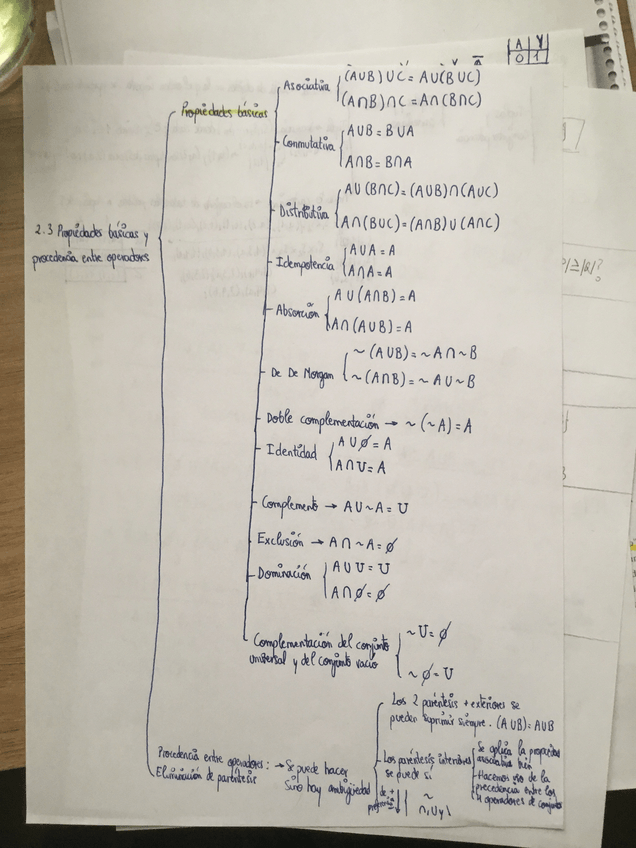 A Y
0 1
2.3 Propiedades básicas y
procedencia entre operadores
Propiedades básicas
Asociativa
(A∪B)∪C = A∪(B∪C)
(A∩B)∩C = A∩(B∩C)
Conmutativa
A∪B = B∪A
A∩B = B∩A
Distributiva
A∪(B∩C)=(A∪B)∩(A∪C)
A∩(B∪C)=(A∩B)∪(A∩C)
Idempotencia
A∪A = A
A∩A = A
Absorción
A∪(A∩B)=A
A∩(A∪B)=A
De De Morgam
~(A∪B)=~A∩~B
~(A∩B)=~A∪~B
Doble complementación → ~(~A)=A
Identidad
A∪∅=A
A∩U=A
Complemento → A∪~A=U
Exclusión → A∩~A=∅
Dominación
A∪U=U
A∩∅=∅
Complementación del conjunto
universal y del conjunto vacío
~U=∅
~∅=U
Procedencia entre operadores:
Eliminación de paréntisis
→ Se puede hacer
si no hay ambigüedad
Los 2 paréntesis + exteriores se
pueden suprimir siempre. (A∪B)=A∪B
Los paréntesis interiores
se puede si
Se aplica la propiedad
asociativa bien
Hacemos uso de la
precedencia entre los
4 operadores de conjuntos
de +
~
∩,∪y\